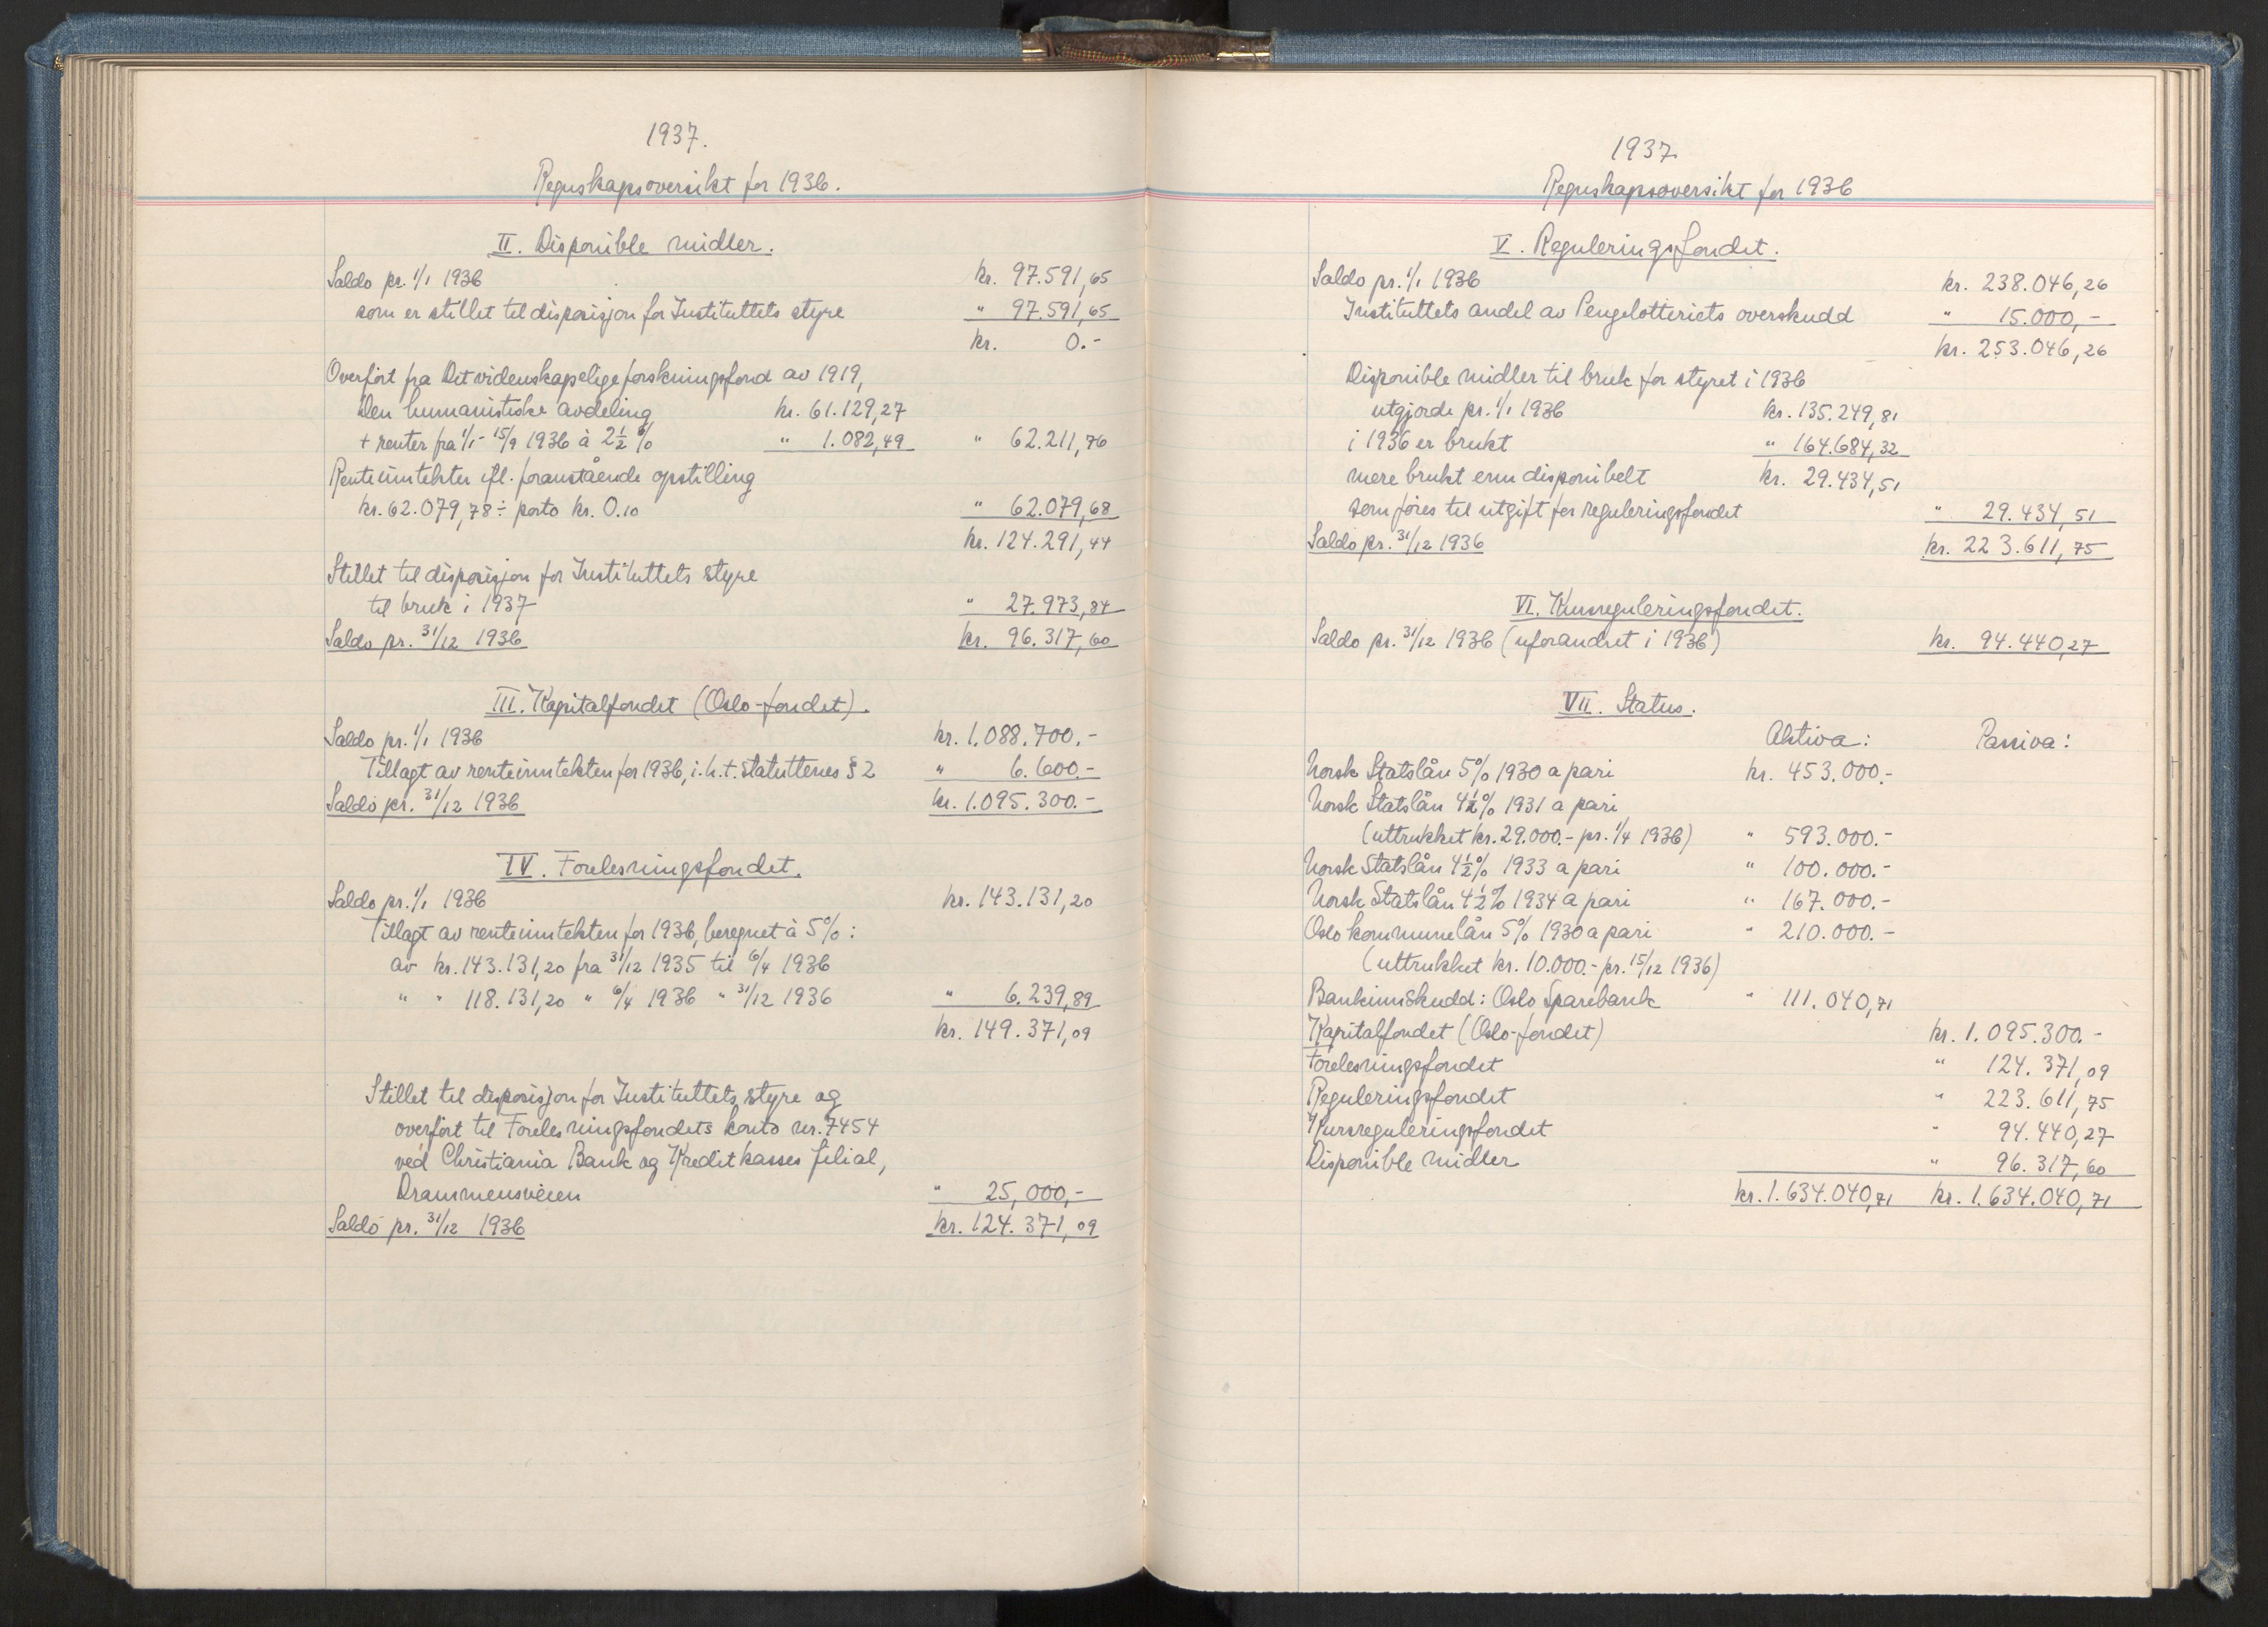 1937.
Regnskapsoversikt for 1936.
II. Disponible midler.
Saldo pr. 1/1 1936 kr. 97.591,65
som er stillet til disposisjon for Instituttets styre " 97.591,65
kr. 0.-
Overført fra Det videnskapelige forskningsfond av 1919,
Den humanistiske avdeling kr. 61.129,27
+ renter fra 1/1 - 15/9 1936 à 2½% " 1.082,49 " 62.211,76
Renteinntekter ifl. foranstående opstilling
kr. 62.079,78 ÷ porto kr. 0.10 " 62.079,68
kr. 124.291,44
Stillet til disposisjon for Instituttets styre
til bruk i 1937 " 27.973,84
Saldo pr. 31/12 1936 kr. 96.317,60
III. Kapitalfondet (Oslo-fondet).
Saldo pr. 1/1 1936 kr. 1.088.700.-
Tillagt av renteinntekten for 1936, i.h.t. statuttenes § 2 " 6.600.-
Saldo pr. 31/12 1936 kr. 1.095.300.-
IV. Forelesningsfondet.
Saldo pr. 1/1 1936 kr. 143.131,20
Tillagt av renteinntekten for 1936, beregnet à 5%:
av kr. 143.131,20 fra 31/12 1935 til 6/4 1936
" " 118.131,20 " 6/4 1936 " 31/12 1936 " 6.239,89
kr. 149.371,09
Stillet til disposisjon for Instituttets styre og
overført til Forelesningsfondets konto nr. 7454
ved Christiania Bank og Kreditkasses filial,
Drammensveien " 25,000,-
Saldo pr. 31/12 1936 kr. 124.371,09
1937
Regnskapsoversikt for 1936
V. Reguleringsfondet.
Saldo pr. 1/1 1936 kr. 238.046,26
Instituttets andel av Pengelotteriets overskudd " 15.000,-
kr. 253.046,26
Disponible midler til bruk for styret i 1936
utgjorde pr. 1/1 1936 kr. 135.249,81
i 1936 er brukt " 164.684,32
mere brukt enn disponibelt kr. 29.434,51
som føres til utgift for reguleringsfondet " 29.434,51
Saldo pr. 31/12 1936 kr. 223.611,75
VI. Kursreguleringsfondet.
Saldo pr. 31/12 1936 (uforandret i 1936) kr. 94.440,27
VII. Status.
Aktiva: Passiva:
Norsk Statslån 5% 1930 a pari kr. 453.000.-
Norsk Statslån 4½% 1931 a pari
(uttrukket kr. 29.000.- pr. 1/4 1936) " 593.000.-
Norsk Statslån 4½% 1933 a pari " 100.000.-
Norsk Statslån 4½% 1934 a pari " 167.000.-
Oslo kommunelån 5% 1930 a pari " 210.000.-
(uttrukket kr. 10.000.- pr. 15/12 1936)
Bankinnskudd: Oslo Sparebank " 111.040,71
Kapitalfondet (Oslo-fondet) kr. 1.095.300.-
Forelesningsfondet " 124.371,09
Reguleringsfondet " 223.611,75
Kursreguleringsfondet " 94.440,27
Disponible midler " 96.317,60
kr. 1.634.040,71 kr. 1.634.040,71